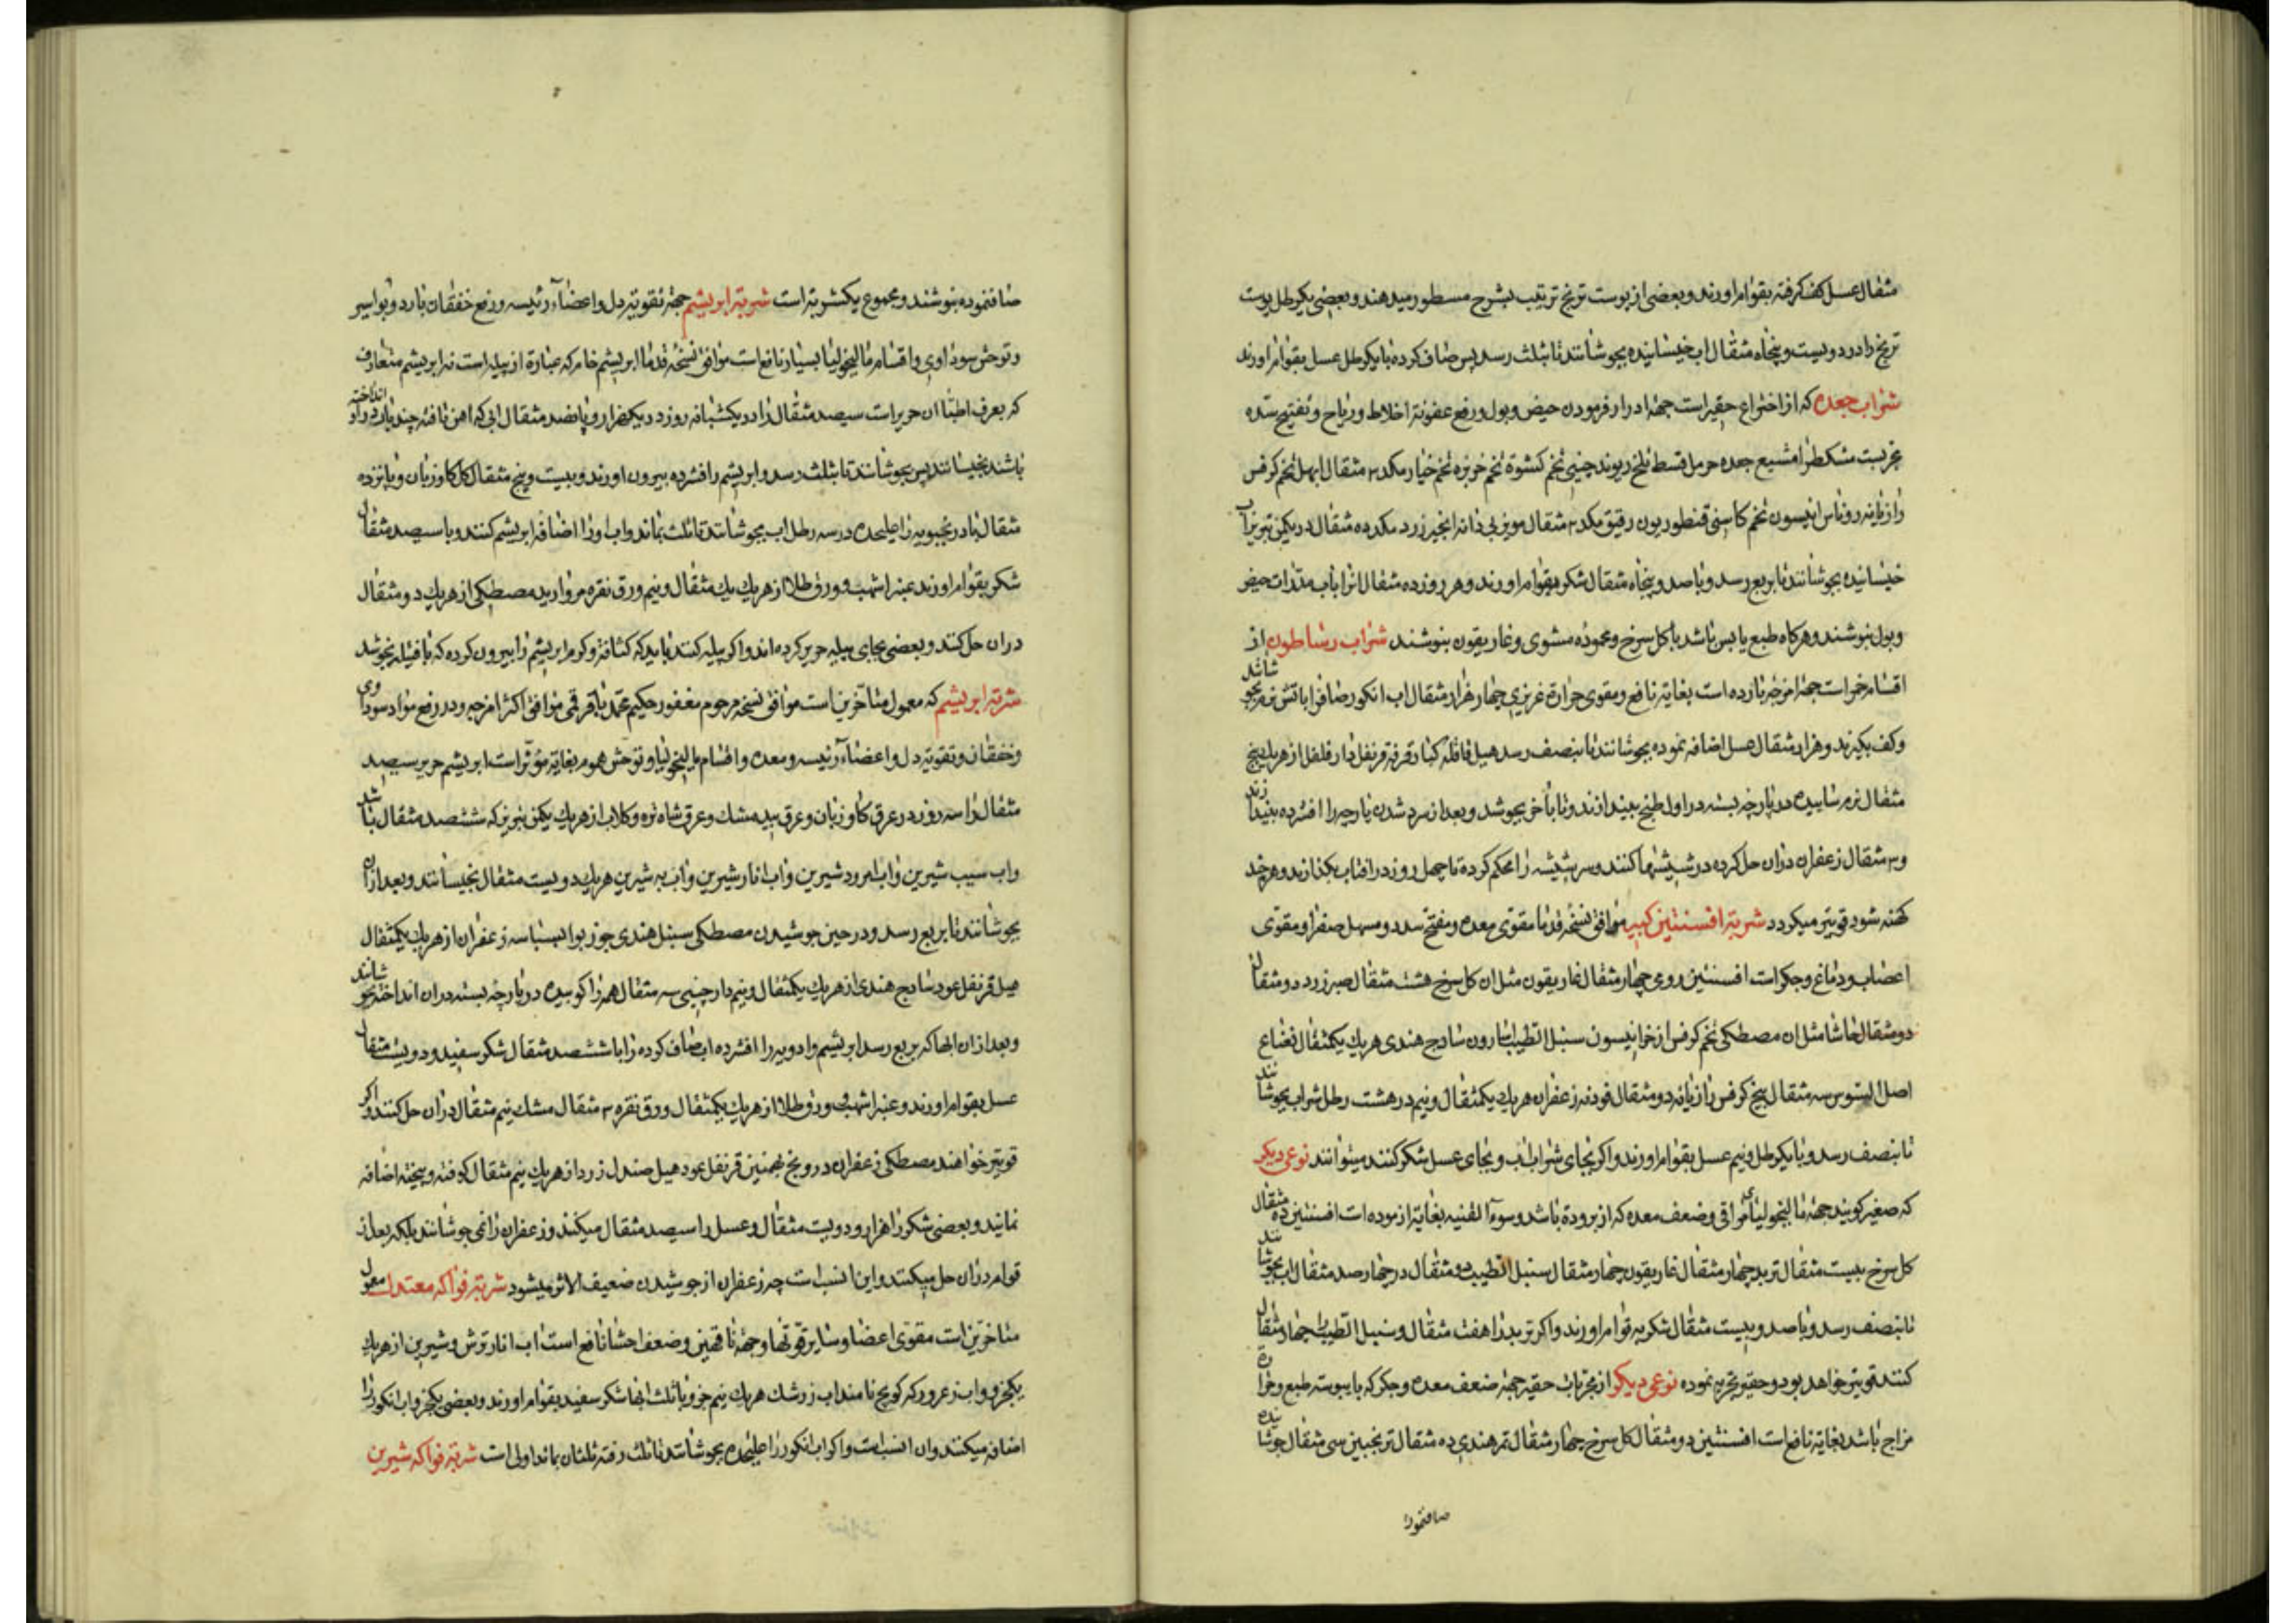 مثقال عسل کف کرفته بقوام اورند و بعضی از پوست ترنج ترتیب بشرح مسطور میدهند و بعضی یکرطل پوست
ترنج را در دویست و پنجاه مثقال اب خیسانیده بجوشانند تا بثلث رسد پس صاف کرده با یکرطل عسل بقوام اورند
شراب جعده که از اختراع حقیر است جهة ادرار فرمودن حیض و بول و رفع عفونة اخلاط و ریاح و تفتیح سده
مجربست مشکطرامشیع جعده حرمل قسط تلخ ریوند چینی تخم کشوث تخم خربزه تخم خیار مکد ۳ مثقال ابهل تخم کرفس
رازیانه روناس انیسون تخم کاسنی قنطوریون رقیق مکد ۲ مثقال مویز بی دانه انجیر زرد مکد ده مثقال در یکمن تبریز اب
خیسانیده بجوشانند تا بربع رسد و با صد و پنجاه مثقال شکر بقوام اورند و هر روز ده مثقال انرا باب مدرات حیض
و بول بنوشند و هرکاه طبع یابس باشد با کل سرخ و محموده مشوی و غاریقون بنوشند شراب رساطون از
اقسام خمر است جهة امزجه بارده است بغایة نافع و مقوی حرارة غریزی چهار هزار مثقال اب انکور صاف را باتش نرم بجوشانند
و کف بکیرند و هزار مثقال عسل اضافه نموده بجوشانند تا بنصف رسد هیل قاقله کبار قرفه قرنفل دار فلفل از هریك پنج
مثقال نرم سائیده در پارچه بسته در اول طبخ بیندازند و تا باخر بجوشد و بعد از سرد شدن پارچه را افشرده بیندازند
و ۳ مثقال زعفران دران حل کرده در شیشها کنند و سر شیشه را محکم کرده تا چهل روز در افتاب بکذارند و هر چند
کهنه شود قویتر میکردد شربة افسنتین کبیر موافق نسخه قدما مقوی معده و مفتح سدد و مسهل صفرا و مقوی
اعصاب و دماغ و جکر است افسنتین رومی چهار مثقال غاریقون مثل ان کل سرخ هشت مثقال صبر زرد دو مثقال
دو مثقال حاشا مثل ان مصطکی تخم کرفس اذخر انیسون سنبل الطیب اسارون سادج هندی هریك یکمثقال نعناع
اصل السوس سه مثقال بیخ کرفس رازیانه دو مثقال فودنه زعفران هریك یکمثقال و نیم در هشت رطل شراب بجوشانند
تا بنصف رسد و با یکرطل و نیم عسل بقوام اورند و اکر بجای شراب اب و بجای عسل شکر کنند میتوانند نوعی دیکر
که صغیر کویند جهة مالیخولیای مراقی و ضعف معده که از برودة باشد و سوء القنیه بغایة ازموده است افسنتین ده مثقال
کل سرخ بیست مثقال تربد چهار مثقال غاریقون چهار مثقال سنبل الطیب دو مثقال در چهار صد مثقال اب بجوشانند
تا بنصف رسد و با صد و بیست مثقال شکر بقوام اورند و اکر تربد را هفت مثقال و سنبل الطیب را چهار مثقال
کنند قویتر خواهد بود و حقیر تجربه نموده نوعی دیکر از مجربات حقیر جهة ضعف معده و جکر که با یبوسة طبع و حرارة
مزاج باشد بغایة نافع است افسنتین دو مثقال کل سرخ چهار مثقال تمر هندی ده مثقال ترنجبین سی مثقال جوشانیده
صافنموده
صافنموده بنوشند و مجموع یکشربة است شربة ابریشم جهة تقویة دل و اعضاء رئیسه و رفع خفقان بارد و بواسیر
و توحش سوداوی و اقسام مالیخولیا بسیار نافع است موافق نسخه قدما ابریشم خام که عبارة از پیله است نه ابریشم متعارف
که بعرف اطبا ان حریر است سیصد مثقال را در یکشبانه روز در یکهزار و پانصد مثقال ابی که اهن تافته چند بار در او انداخته
باشند بخیسانند پس بجوشانند تا بثلث رسد و ابریشم را افشرده بیرون اورند و بیست و پنج مثقال کل کاوزبان و پانزده
مثقال بادرنجبویه را علیحده در سه رطل اب بجوشانند تا ثلث بماند و اب او را اضافه ابریشم کنند و با سیصد مثقال
شکر بقوام اورند عنبر اشهب و ورق طلا از هریك یك مثقال و نیم ورق نقره مروارید مصطکی از هریك دو مثقال
دران حل کنند و بعضی بجای پیله حریر کرده اند و اکر پیله کنند باید که کثافة و کرم ابریشم را بیرون کرده که با پیله نجوشد
شربة ابریشم که معمول متاخرین است موافق نسخه مرحوم مغفور حکیم محمد باقر قمی موافق اکثر امزجه و در رفع مواد سوداوی
و خفقان و تقویة دل و اعضاء رئیسه و معده و اقسام مالیخولیا و توحش هموم بغایة مؤثر است ابریشم حریر سیصد
مثقال را سه روز در عرق کاوزبان و عرق بید مشك و عرق شاه تره و کلاب از هریك یکمن تبریز که ششصد مثقال باشد
و اب سیب شیرین و اب امرود شیرین و اب انار شیرین و اب به شیرین هریك دویست مثقال بخیسانند و بعد ازان
بجوشانند تا بربع رسد و در حین جوشیدن مصطکی سنبل هندی جوز بوا بسباسه زعفران از هریك یکمثقال
هیل قرنفل عود سادج هندی از هریك یکمثقال و نیم دارچینی سه مثقال همه را کوبیده در پارچه بسته دران انداخته بجوشانند
و بعد ازان ابها که بربع رسد ابریشم و ادویه را افشرده اب صاف کرده را با ششصد مثقال شکر سفید و دویست مثقال
عسل بقوام اورند و عنبر اشهب و ورق طلا از هریك یکمثقال و ورق نقره ۳ مثقال مشك نیم مثقال دران حل کنند و اکر
قویتر خواهند مصطکی زعفران درونج بهمنین قرنفل عود هیل صندل زرد از هریك نیم مثقال کوفته و بیخته اضافه
نمایند و بعضی شکر را هزار و دویست مثقال و عسل را سیصد مثقال میکنند و زعفران را نمی جوشانند بلکه بعد از
قوام دران حل میکنند و این انسب است چه زعفران از جوشیدن ضعیف الاثر میشود شربة فواکه معتدل معمول
متاخرین است مقوی اعضا و سایر قوتها و جهة ناقهین و ضعف احشا نافع است اب انار ترش و شیرین از هریك
یکجزو و اب زعرور که کویج نامند اب زرشك هریك نیم جزو با ثلث انها شکر سفید بقوام اورند و بعضی یکجزو اب انکور را
اضافه میکنند وان انسب است و اکر اب انکور را علیحده بجوشانند تا ثلث رفته ثلثان بماند اولی است شربة فواکه شیرین